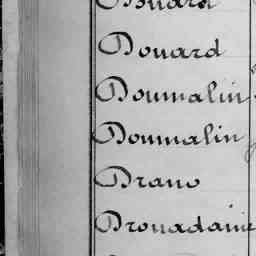 Douard
Douard
Doumalin
Doumalin
Drano
Drouadaine